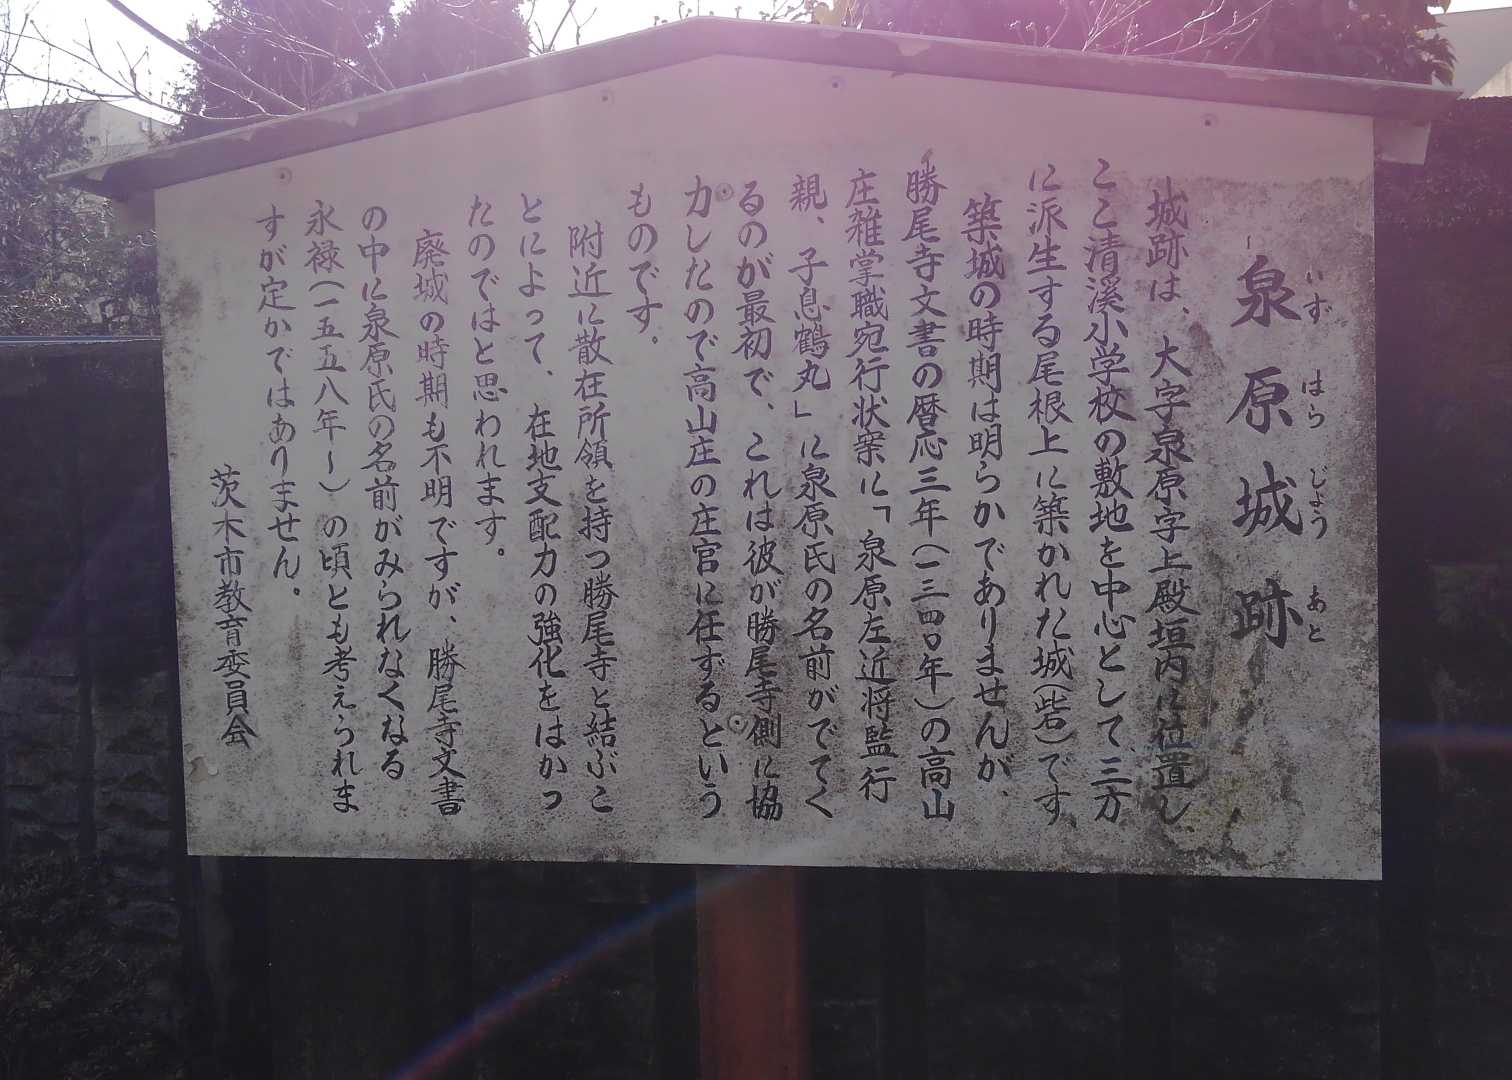 泉原城跡
いずはらじょうあと
城跡は、大字泉原字上殿垣内に位置し、
ここ清溪小学校の敷地を中心として三方
に派生する尾根上に築かれた城(砦)です。
築城の時期は明らかでありませんが、
勝尾寺文書の暦応三年(一三四〇年)の高山
庄雑掌職宛行状案に「泉原左近将監行
親、子息鶴丸」に泉原氏の名前がでてく
るのが最初で、これは彼が勝尾寺側に協
力したので高山庄の庄官に任ずるという
ものです。
附近に散在所領を持つ勝尾寺と結ぶこ
とによって、在地支配力の強化をはかっ
たのではと思われます。
廃城の時期も不明ですが、勝尾寺文書
の中に泉原氏の名前がみられなくなる
永禄(一五五八年〜)の頃とも考えられま
すが定かではありません。
茨木市教育委員会